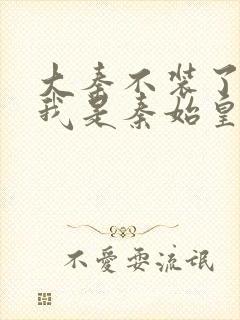 大秦不装了
我是秦始皇
不愛耍流氓